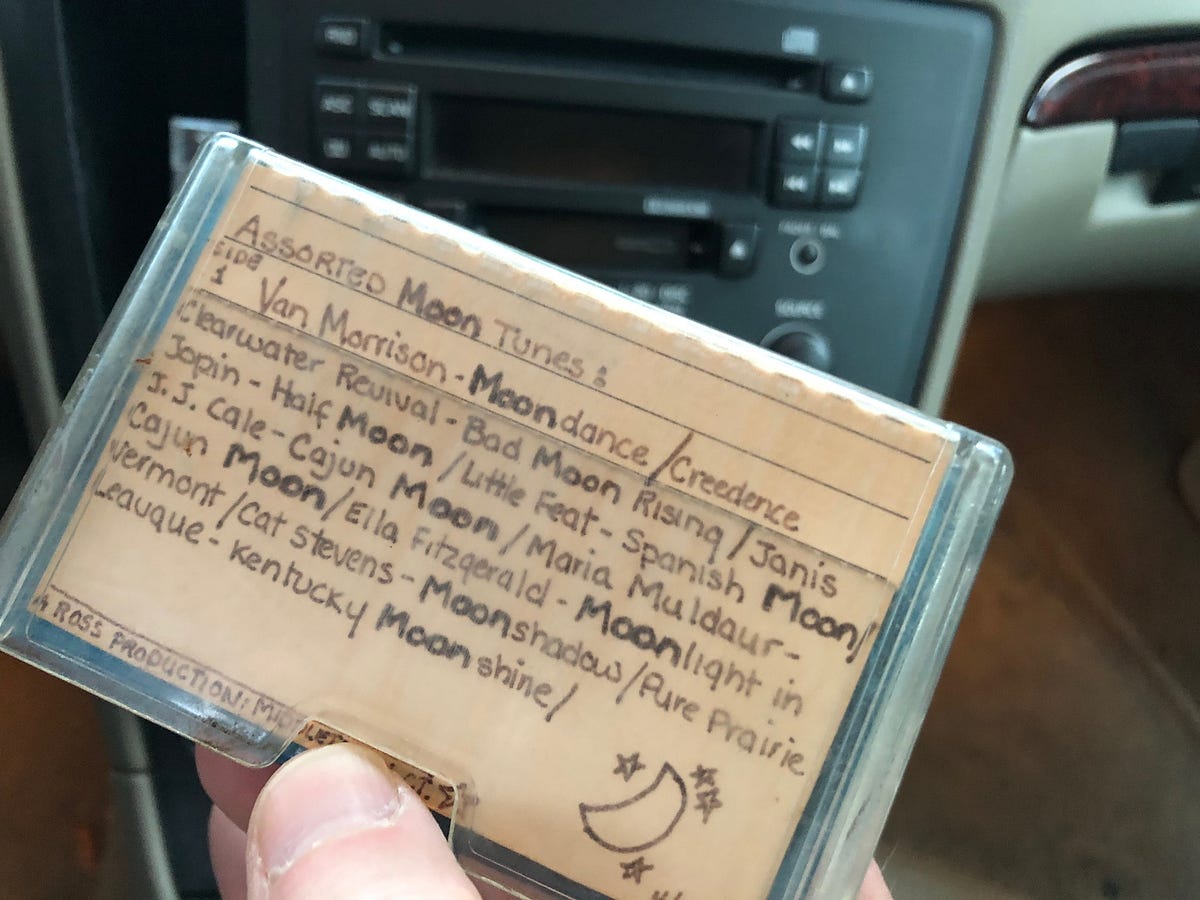 ASSORTED Moon Tunes:
SIDE 1 Van Morrison - Moondance / Creedence
Clearwater Revival - Bad Moon Rising / Janis
Jopin - Half Moon / Little Feat - Spanish Moon /
J.J. Cale - Cajun Moon / Maria Muldaur -
Cajun Moon / Ella Fitzgerald - Moonlight in
Vermont / Cat Stevens - Moonshadow / Pure Prairie
Leauque - Kentucky Moonshine /
ROSS PRODUCTION:
SCAN
AUTO
SOURCE